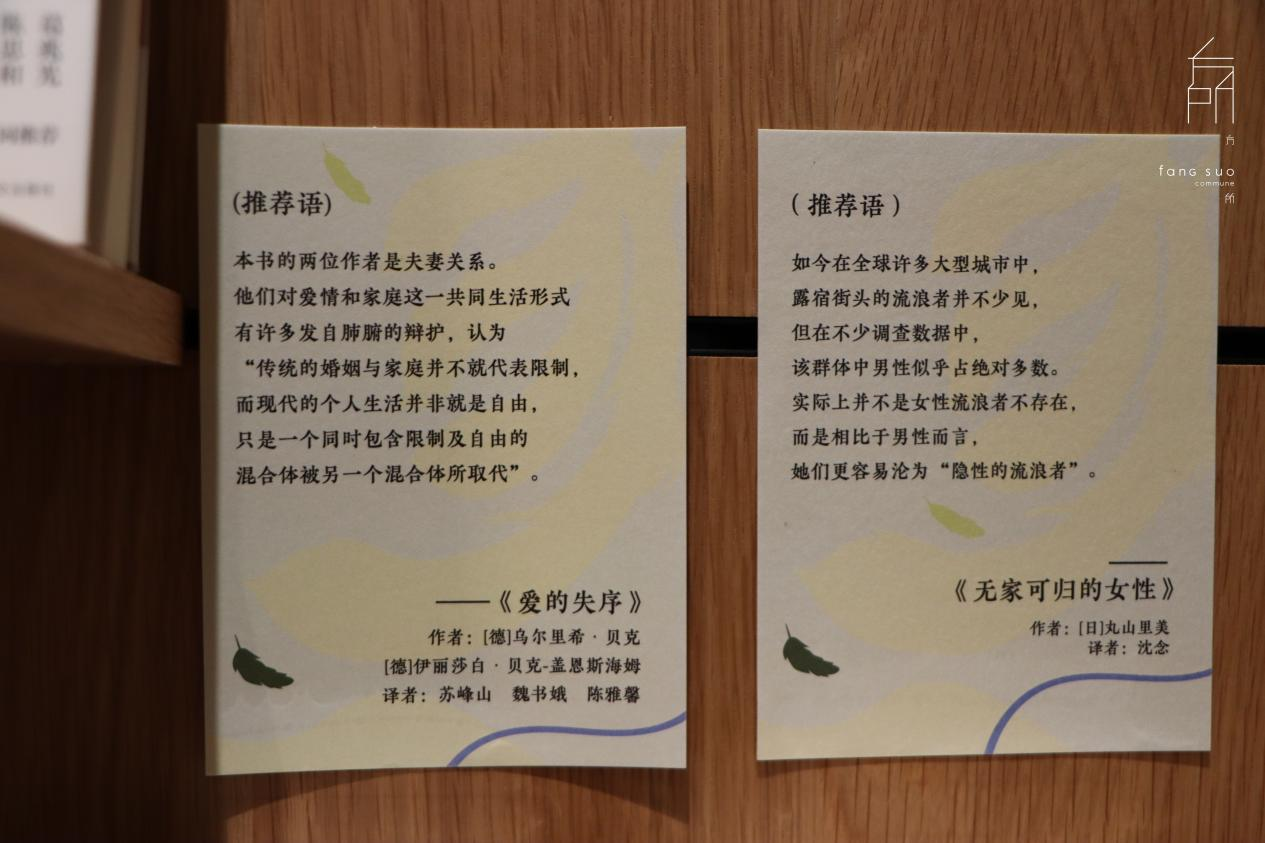 (推荐语)
本书的两位作者是夫妻关系。
他们对爱情和家庭这一共同生活形式
有许多发自肺腑的辩护，认为
“传统的婚姻与家庭并不就代表限制，
而现代的个人生活并非就是自由，
只是一个同时包含限制及自由的
混合体被另一个混合体所取代”。
——《爱的失序》
作者：[德]乌尔里希·贝克
[德]伊丽莎白·贝克-盖恩斯海姆
译者：苏峰山 魏书娥 陈雅馨
（推荐语）
如今在全球许多大型城市中，
露宿街头的流浪者并不少见，
但在不少调查数据中，
该群体中男性似乎占绝对多数。
实际上并不是女性流浪者不存在，
而是相比于男性而言，
她们更容易沦为“隐性的流浪者”。
——
《无家可归的女性》
作者：[日]丸山里美
译者：沈念
方
fang suo
commune
所